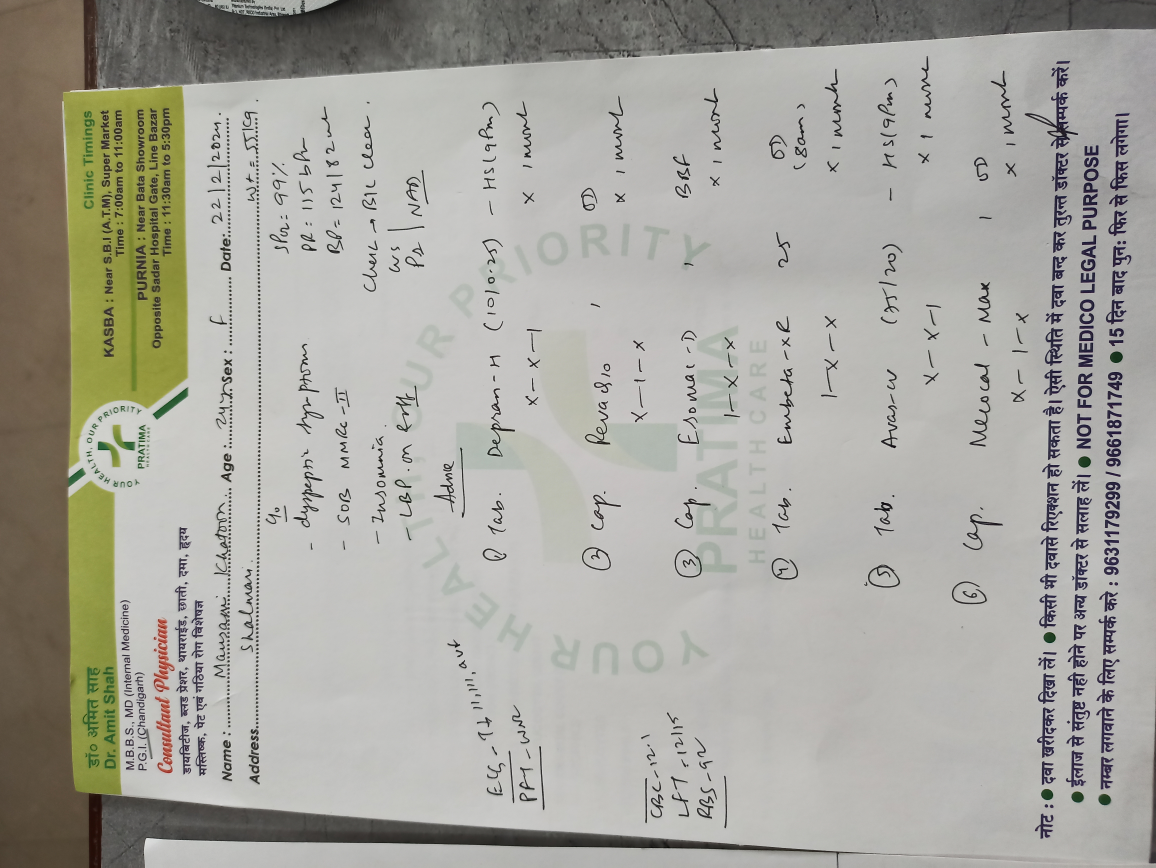 डॉ० अमित साह
Dr. Amit Shah
M.B.B.S., MD (Internal Medicine)
P.G.I. (Chandigarh)
Consultant Physician
डायबिटीज, ब्लड प्रेशर, थायराईड, छाती, दमा, हृदय
मस्तिष्क, पेट एवं गठिया रोग विशेषज्ञ
YOUR HEALTH, OUR PRIORITY
PRATIMA
Clinic Timings
KASBA : Near S.B.I (A.T.M), Super Market
Time : 7:00am to 11:00am
PURNIA : Near Bata Showroom
Opposite Sadar Hospital Gate, Line Bazar
Time : 11:30am to 5:30pm
Name : Mausami Khatoon Age : 24yr Sex : F Date: 22/2/2024
Address Shalmari wt = 55Kg
c/o
- dyspeptic symptoms
- SOB MMRC-II
- Insomnia
- LBP on & off
SPO2 = 99%
PR = 115 bPm
BP = 124/82
Chest → B/L clear.
NAD
ECG - II, III, avf
PFT - WNL
CBC - 12.1
LFT - 12/15
RBS - 92
Advice
① Tab. Depran-H (10/0.25) - HS (9Pm)
X-X-1 X 1 month
② Cap. 1 OD
X-1-X X 1 month
③ Cap. Esomac-D 1 BBF
1-X-X X 1 month
④ Tab. Embeta-XR 25 OD (8am)
1-X-X X 1 month
⑤ Tab. Avas-cv (75/20) - HS (9Pm)
X-X-1 X 1 month
⑥ Cap. Mecocal-Max 1 OD
X-1-X X 1 month
YOUR HEALTH, OUR PRIORITY
PRATIMA
HEALTH CARE
नोट : ● दवा खरीदकर दिखा लें। ● किसी भी दवासे रिएक्शन हो सकता है। ऐसी स्थिति में दवा बन्द कर तुरन्त डॉक्टर से सम्पर्क करें।
● ईलाज से संतुष्ट नही होने पर अन्य डॉक्टर से सलाह लें। ● NOT FOR MEDICO LEGAL PURPOSE
● नम्बर लगवाने के लिए सम्पर्क करे : 9631179299 / 9661871749 ● 15 दिन बाद पुनः फिर से फिस लगेगा।